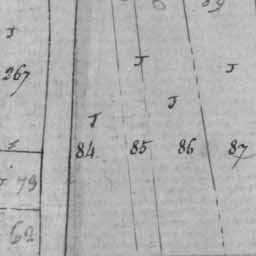 J
J
J
267
J
J
84 85 86 87
J 79
62